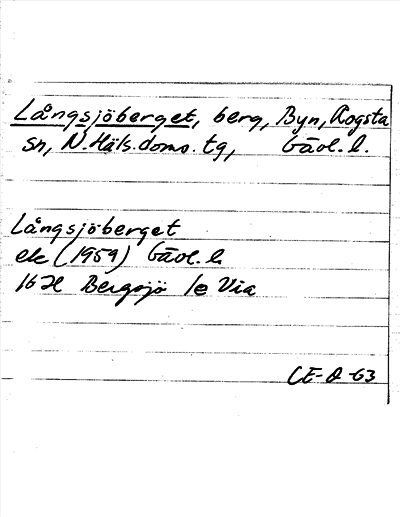 Långsjöberget, berg, Byn, Rogsta
sn, N. Häls. doms. tg, Gävl. l.
Långsjöberget
ek (1959) Gävl. l.
16 H Bergsjö 1e Via
CE-Ö-63